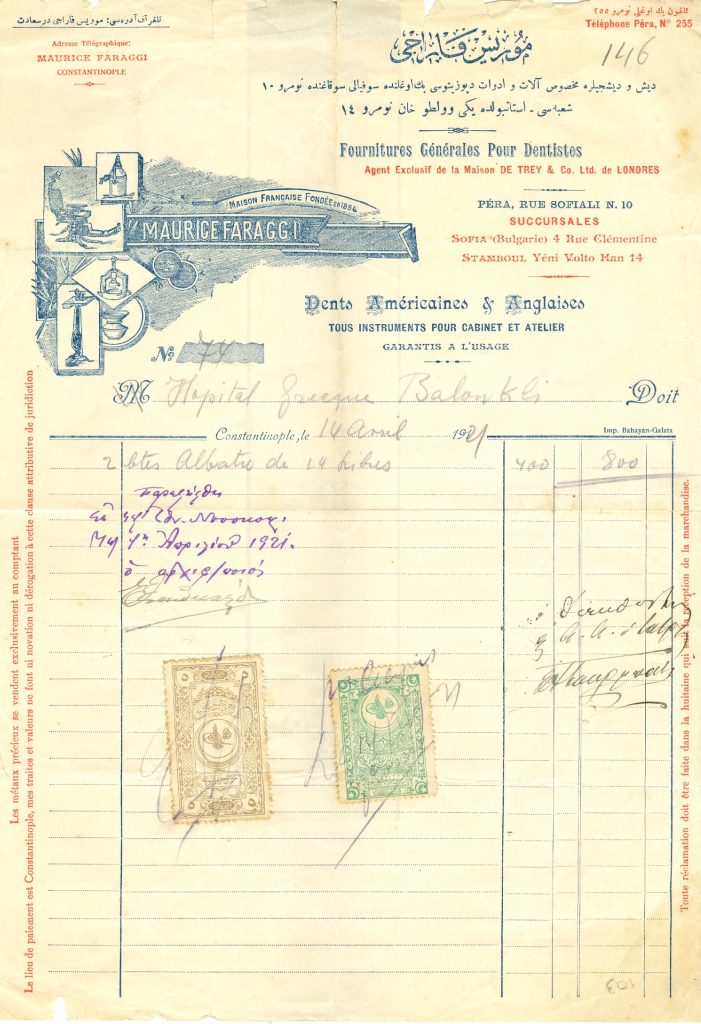 تلغراف آدره سى: موريس فاراجى درسعادت
Adresse Télégraphique;
MAURICE FARAGGI
CONSTANTINOPLE
تلفون بك اوغلى نومرو ٢٥٥
Téléphone Péra, Nº 255
موريس فاراجى
146
ديش و ديشجيلره مخصوص آلات و ادوات ديپوزيتوسى بك اوغلنده سوفيالى سوقاغنده نومرو ١٠
شعبه سى ـ استانبولده يكى وولطو خان نومرو ١٤
Fournitures Générales Pour Dentistes
Agent Exclusif de la Maison DE TREY & Co. Ltd. de LONDRES
MAISON FRANÇAISE FONDÉE EN 1894
MAURICE FARAGGI
PÉRA, RUE SOFIALI N. 10
SUCCURSALES
SOFIA (Bulgarie) 4 Rue Clémentine
STAMBOUL Yéni Volto Han 14
Dents Américaines & Anglaises
TOUS INSTRUMENTS POUR CABINET ET ATELIER
GARANTIS A L'USAGE
No 74
M Hopital Grecque Baloukli Doit
Constantinople, le 14 Avril 1921
Imp. Babayan-Galata
2 btes Albatre de 14 Libres 400 800
παρελήφθη
Απριλίου 1921.
ὁ
Les métaux précieux se vendent exclusivement au comptant
Le lieu de paiement est Constantinople, mes traites et valeurs ne font ni novation ni dérogation à cette clause attributive de juridiction
Toute réclamation doit être faite dans la huitaine qui suit la réception de la marchandise.
٥ ٥
103